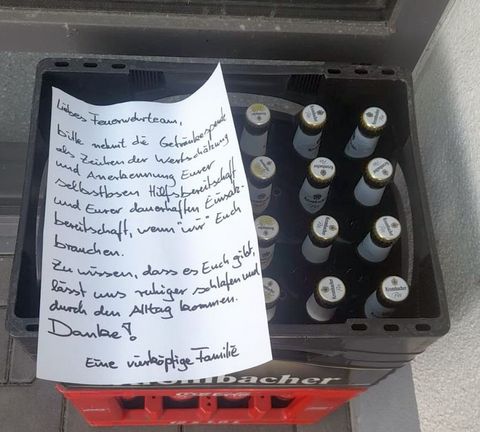 Liebes Feuerwehrteam,
bitte nehmt die Getränkespende
als Zeichen der Wertschätzung
und Anerkennung Eurer
selbstlosen Hilfsbereitschaft
und Eurer dauerhaften Einsatz-
bereitschaft, wenn "wir" Euch
brauchen.
Zu wissen, dass es Euch gibt,
lässt uns ruhiger schlafen und
durch den Alltag kommen.
Danke!
Eine vierköpfige Familie
Krombacher
Krombacher